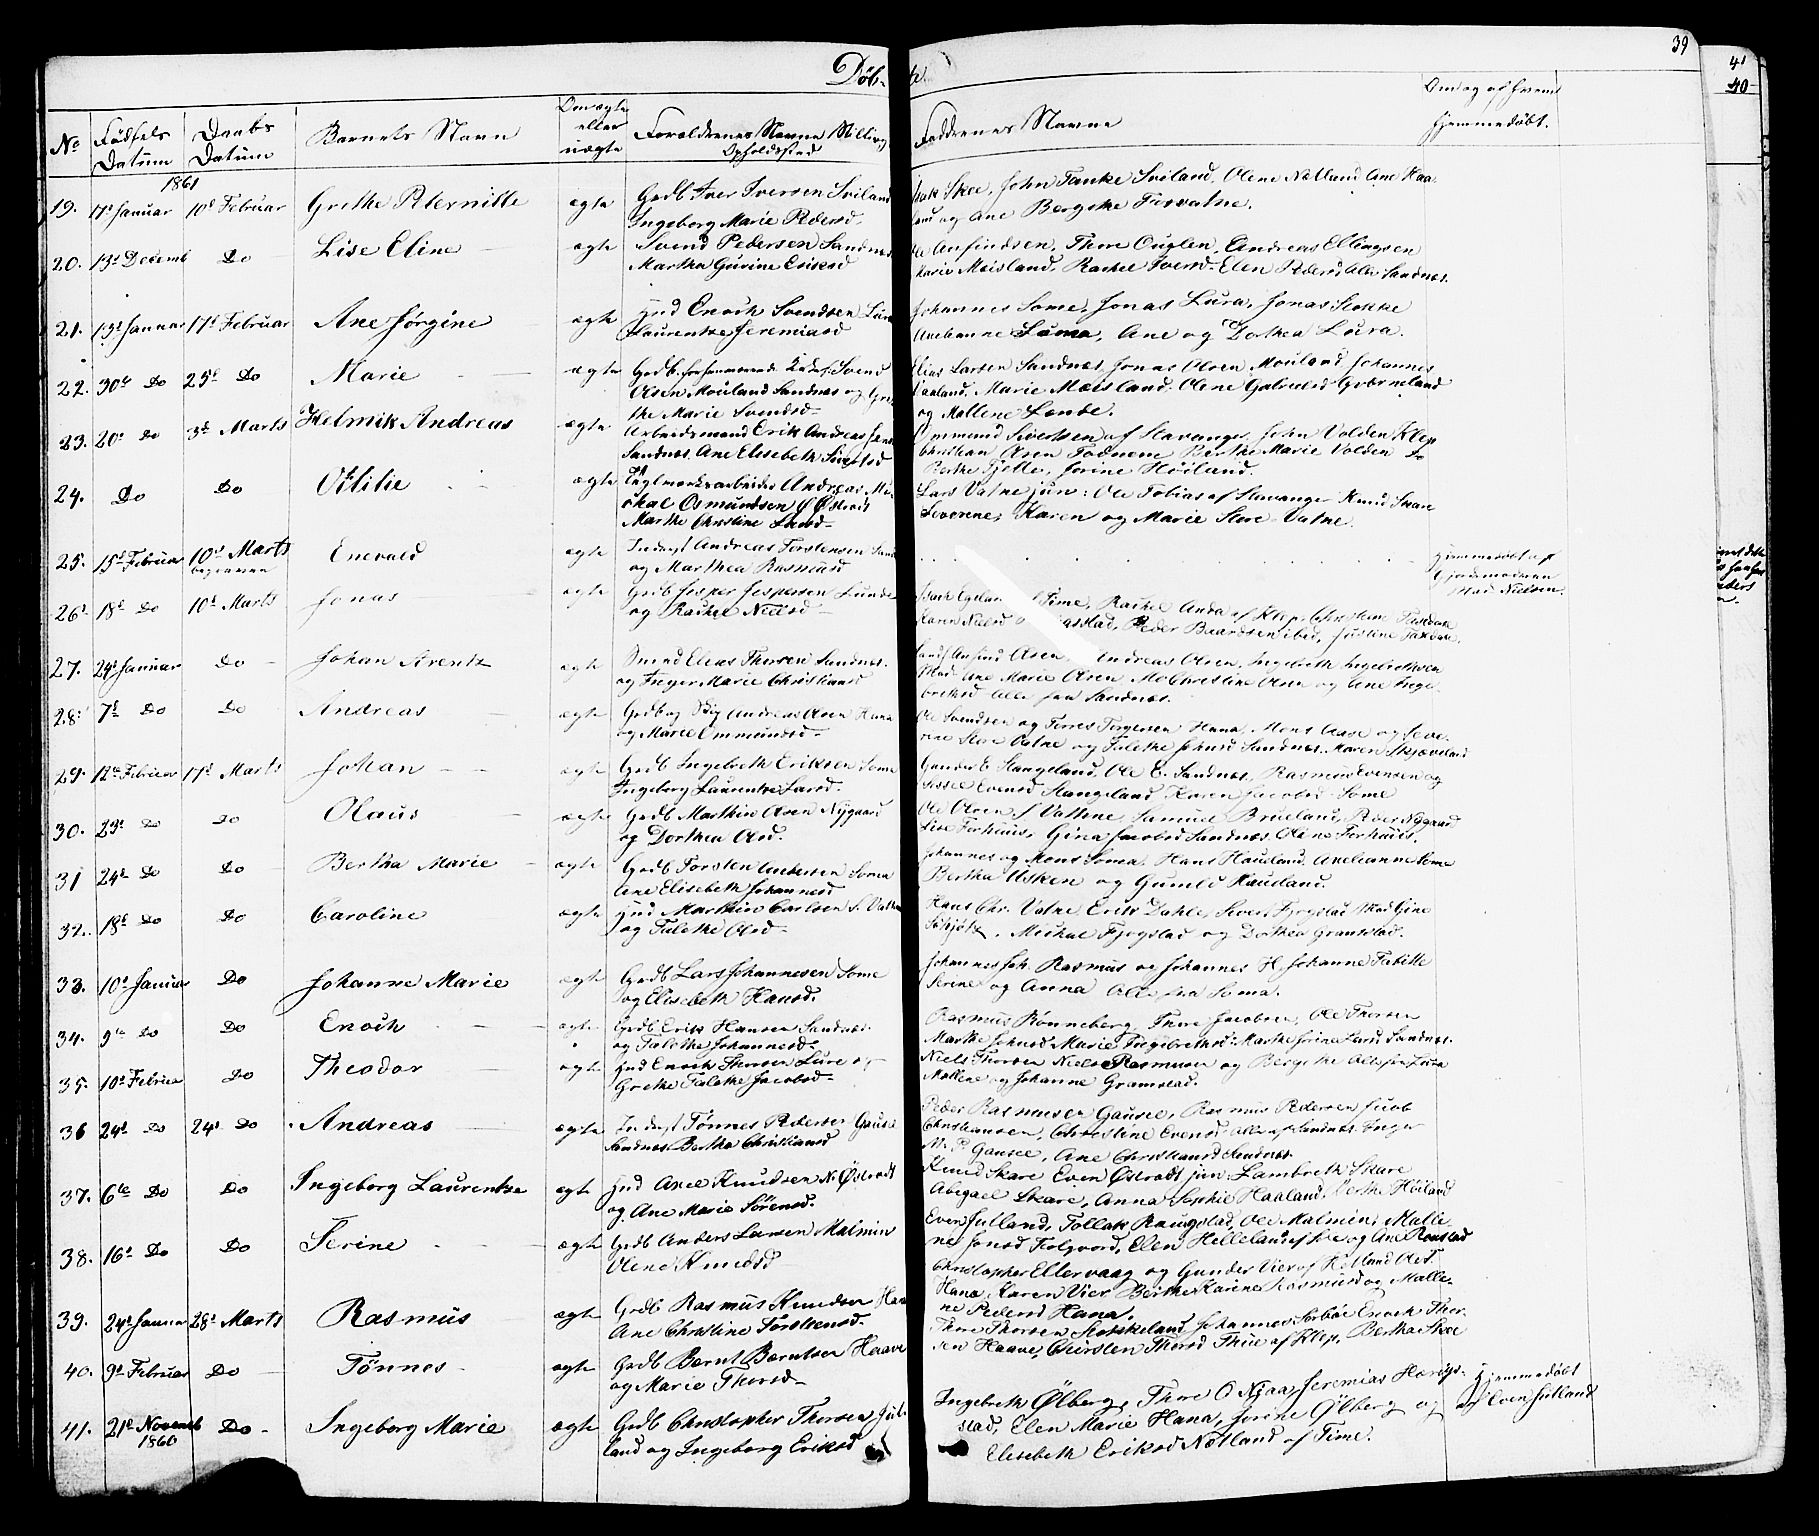 Døb-te.
39
41
40
No
Fødsels Datum
Daabs Datum
Barnets Navn
Om ægte eller uægte
Forældrenes Navne Stilling Opholdssted
Faddernes Navne
Om og af hvem hjemmedøbt.
1861
19. 17d Januar 10d Februar Grethe Peternille ægte Grdb Iver Iversen Sviland
Ingeborg Marie Pedersd.
Skee, John Tanke Sviland, Olene Nætland Ane Haa
land og Ane Bergithe
20. 13d Decemb Do Lise Eline ægte Svend Pedersen Sandnes
Martha Gurine Eriksd
Ole Anfindsen, Thore Ouglen, Andreas Ellingsen
Marie Moisland, Rachel Iversd. Elen Pedersd Alle Sandnes.
21. 13d Januar 17d Februar Ane Jørgine ægte Hmd Enoch Svendsen Lura
Laurentze Jeremiasd
Johannes Some, Jonas Lura, Jonas Stokke
Anehanne Lura, Ane og Dorthea Lura.
22. 30te Do 25d Do Marie ægte Grdb. Svend
Olsen Mouland Sandnes og Gre
the Marie Svendsd
Elias Larsen Sandnes, Jonas Olsen Mouland Johannes
Marie Moisland, Olene Gabrielsd Qværneland
og Mallene Lende.
23. 20de Do 3d Marts Helmik Andreas ægte Arbeidsmand Erik Andreas
Sandnes, Ane Elisabeth Sivertsd
Ommund Sivertsen af Stavanger John Volden Klep
Christian Olsen Todnem Berthe Marie Volden Do
Berthe Tjelte, Jorine Høiland.
24. Do Do Ottilie ægte Teglværksarbeider Andreas Mi
chal Osmundsen Østradt
Marthe Christine Larsd
Lars Vatne jun: Ole Tobias af Stavanger Knud Skare
Severene, Karen og Marie Store-Vatne.
25. 15d Februar 10d Marts begraven Enevald ægte Inderst Andreas Torstensen
og Marthea Rasmusd
hjemmedøbt af
Gjordemoderen
Mad Nielsen.
26. 18d Do 10d Marts Jonas ægte Grdb Jesper Jespersen Lunde
og Rachel Nielsd
Time, Rachel Anda af Klep, Christian
Karen Nielsd Peder Baardsen ibid, Justine
27. 24d Januar Do Johan Arentz ægte Smed Elias Thorsen Sandnes.
og Inger Marie Christiansd
Anfind Olsen, Andreas Olsen, Ingebreth Ingebrethsen
Ane Marie Olsen, Christine Olsen og Ane Inge
brethsd Alle fra Sandnes.
28. 7d Do Do Andreas ægte Grdb og Andreas Olsen Hana
og Marie Ommundsd
Ole Svendsen og Torres Torgersen Hana, Mons Aase og Seve
rine Store Vatne og Talethe Johnsd Sandnes. Maren Skjæveland
29. 12te Februar 17d Marts Johan ægte Grdb Ingebreth Eriksen Some
Ingeborg Laurentze Larsd.
Gunder E Stangeland, Ole E. Sandnes, Rasmus Evensen og
Sissel Evensd Stangeland Karen Jacobsd Some
30. 23d Do Do Olaus ægte Grdb Mathias Olsen Nygaard
og Dorthea Olsd.
Ole Olsen S Vatne, Samuel Brueland, Peder Nygaard
Lise Forhuus, Gina Jacobsd Sandnes, Oline Forhuus.
31 24d Do Do Bertha Marie ægte Grdb Torsten Andersen Soma
Ane Elisabeth Johannesd
Johannes og Mons Soma, Hans Hauland, Anehanne Some
Bertha Usken og Gunild Hauland.
32. 18d Do Do Caroline ægte Hmd Mathias Carlsen S. Vatne
og Talethe Olsd
Hans Chr. Vatne Erik Dahle, Sivert Fjogstad Mad Gine
Schjøtz, Michal Fjogstad og Dorthea Gramstad.
33. 10d Januar Do Johanne Marie ægte Grdb Lars Johannesen Some
og Elisabeth Hansd.
Johannes Joh. Rasmus og Johannes H. Johanne Tabitte
Serine og Anna Alle fra Soma.
34. 9de Do Do Enoch ægte Grdb Erik Hansen Sandnes.
og Talethe Johannesd
Rasmus Rønneberg, Thore Jacobsen, Ole Thorsen
Marthe Johnsd Marie Ingebrethsd: Marthe Jorine Larsd Sandnes.
35. 10d Februar Do Theodor ægte Hmd Enoch Thorsen Lure og
Grethe Talethe Jacobsd
Niels Thorsen Niels Rasmusen og Bergithe Alle fra Lura
Mallene og Johanne Gramstad.
36 24d Do 24d Do Andreas ægte Inderst Tønnes Pedersen Gausel
Sandnes Bertha Christiansd
Peder Rasmusen Gausel, Rasmus Pedersen Jacob
Christiansen, Christine Evensd Alle af Sandnes. Inger
M. P. Gausel, Ane Christiansd Sandnes
37. 6te Do Do Ingeborg Laurentze ægt Hmd Axel Knudsen N. Østradt
og Ane Marie Sørensd.
Knud Skare Even Østradt jun Lambreth Skare
Abegael Skare, Anna Sophie Haaland, Berthe Høiland
38. 16d Do Do Serine ægte Grdb Anders Larsen Malmin
Olene Knudsd
Even Jutland, Tollak Raugstad, Ole Malmin, Malle
ne Jonsd Elen Helleland og Ane
39. 24d Januar 28d Marts Rasmus ægte Grdb Rasmus Knudsen Hana
Ane Christine Torstensd.
Christopher Ellevaag og Gunder Vier af Hetland
Hana, Karen Vier Berthe Karine Rasmusd og Malle-
ne Pedersd Hana.
40. 9d Februar Do Tønnes ægte Grdb Bernt Berntsen Haave
og Marie Thorsd
Thore Thorsen Stokkeland, Johannes Sørbøe Enoch Thor
sen Haave, Chirsten Thorsd Thue af Klep, Bertha Skee
41. 21d Novemb 1860 Do Ingeborg Marie ægte Grdb Christopher Thorsen Jut-
land og Ingeborg Eriksd
Ingebreth Ølberg, Thore O Njaa, Jeremias Hærigs-
stad, Elen Marie Hana, Jorine Ølberg og
Elisebeth Eriksd Nætland af Time.
hjemmedøbt
af Even Jutland